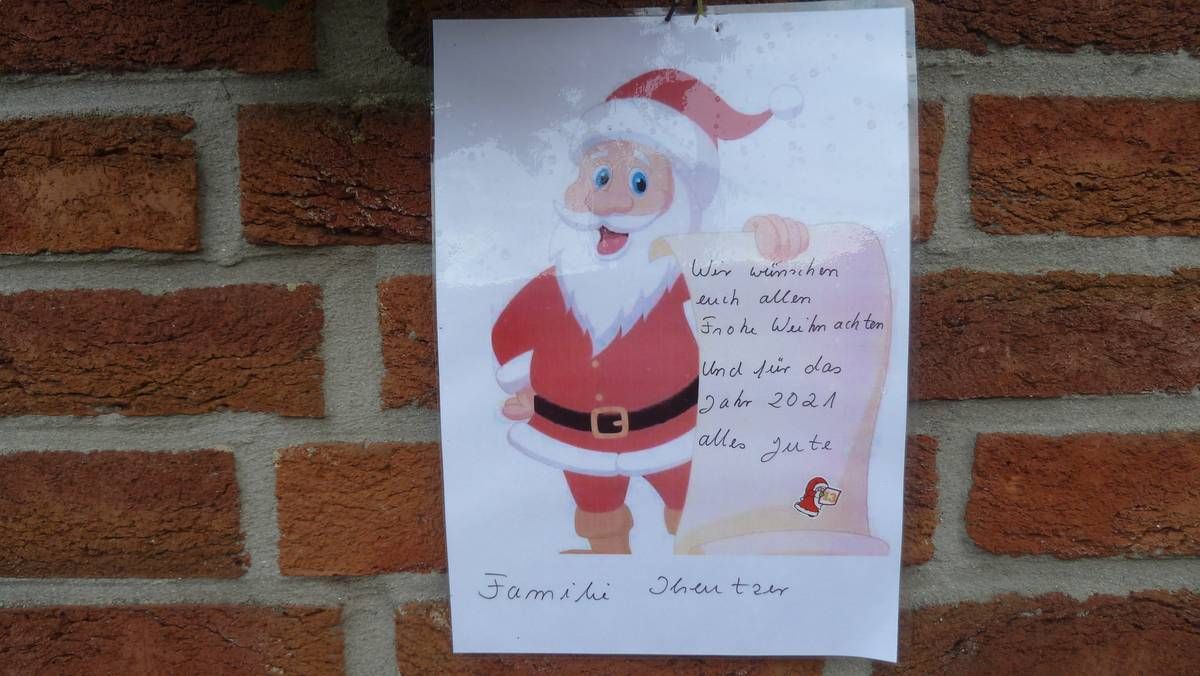 Wir wünschen
euch allen
Frohe Weihnachten
Und für das
Jahr 2021
alles gute
13
Familie